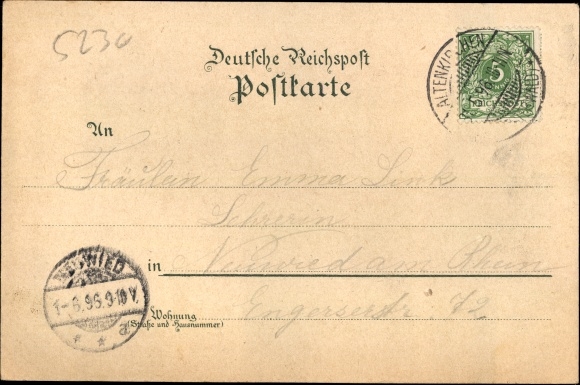 5230
Deutsche Reichspost
Postkarte
ALTENKIRCHEN
5
An
Fräulein Emma Link
Lehrerin
in Neuwied am Rhein
NEUWIED
1-6.96.9-10V.
Wohnung Engerserstr. 72
(Straße und Hausnummer)